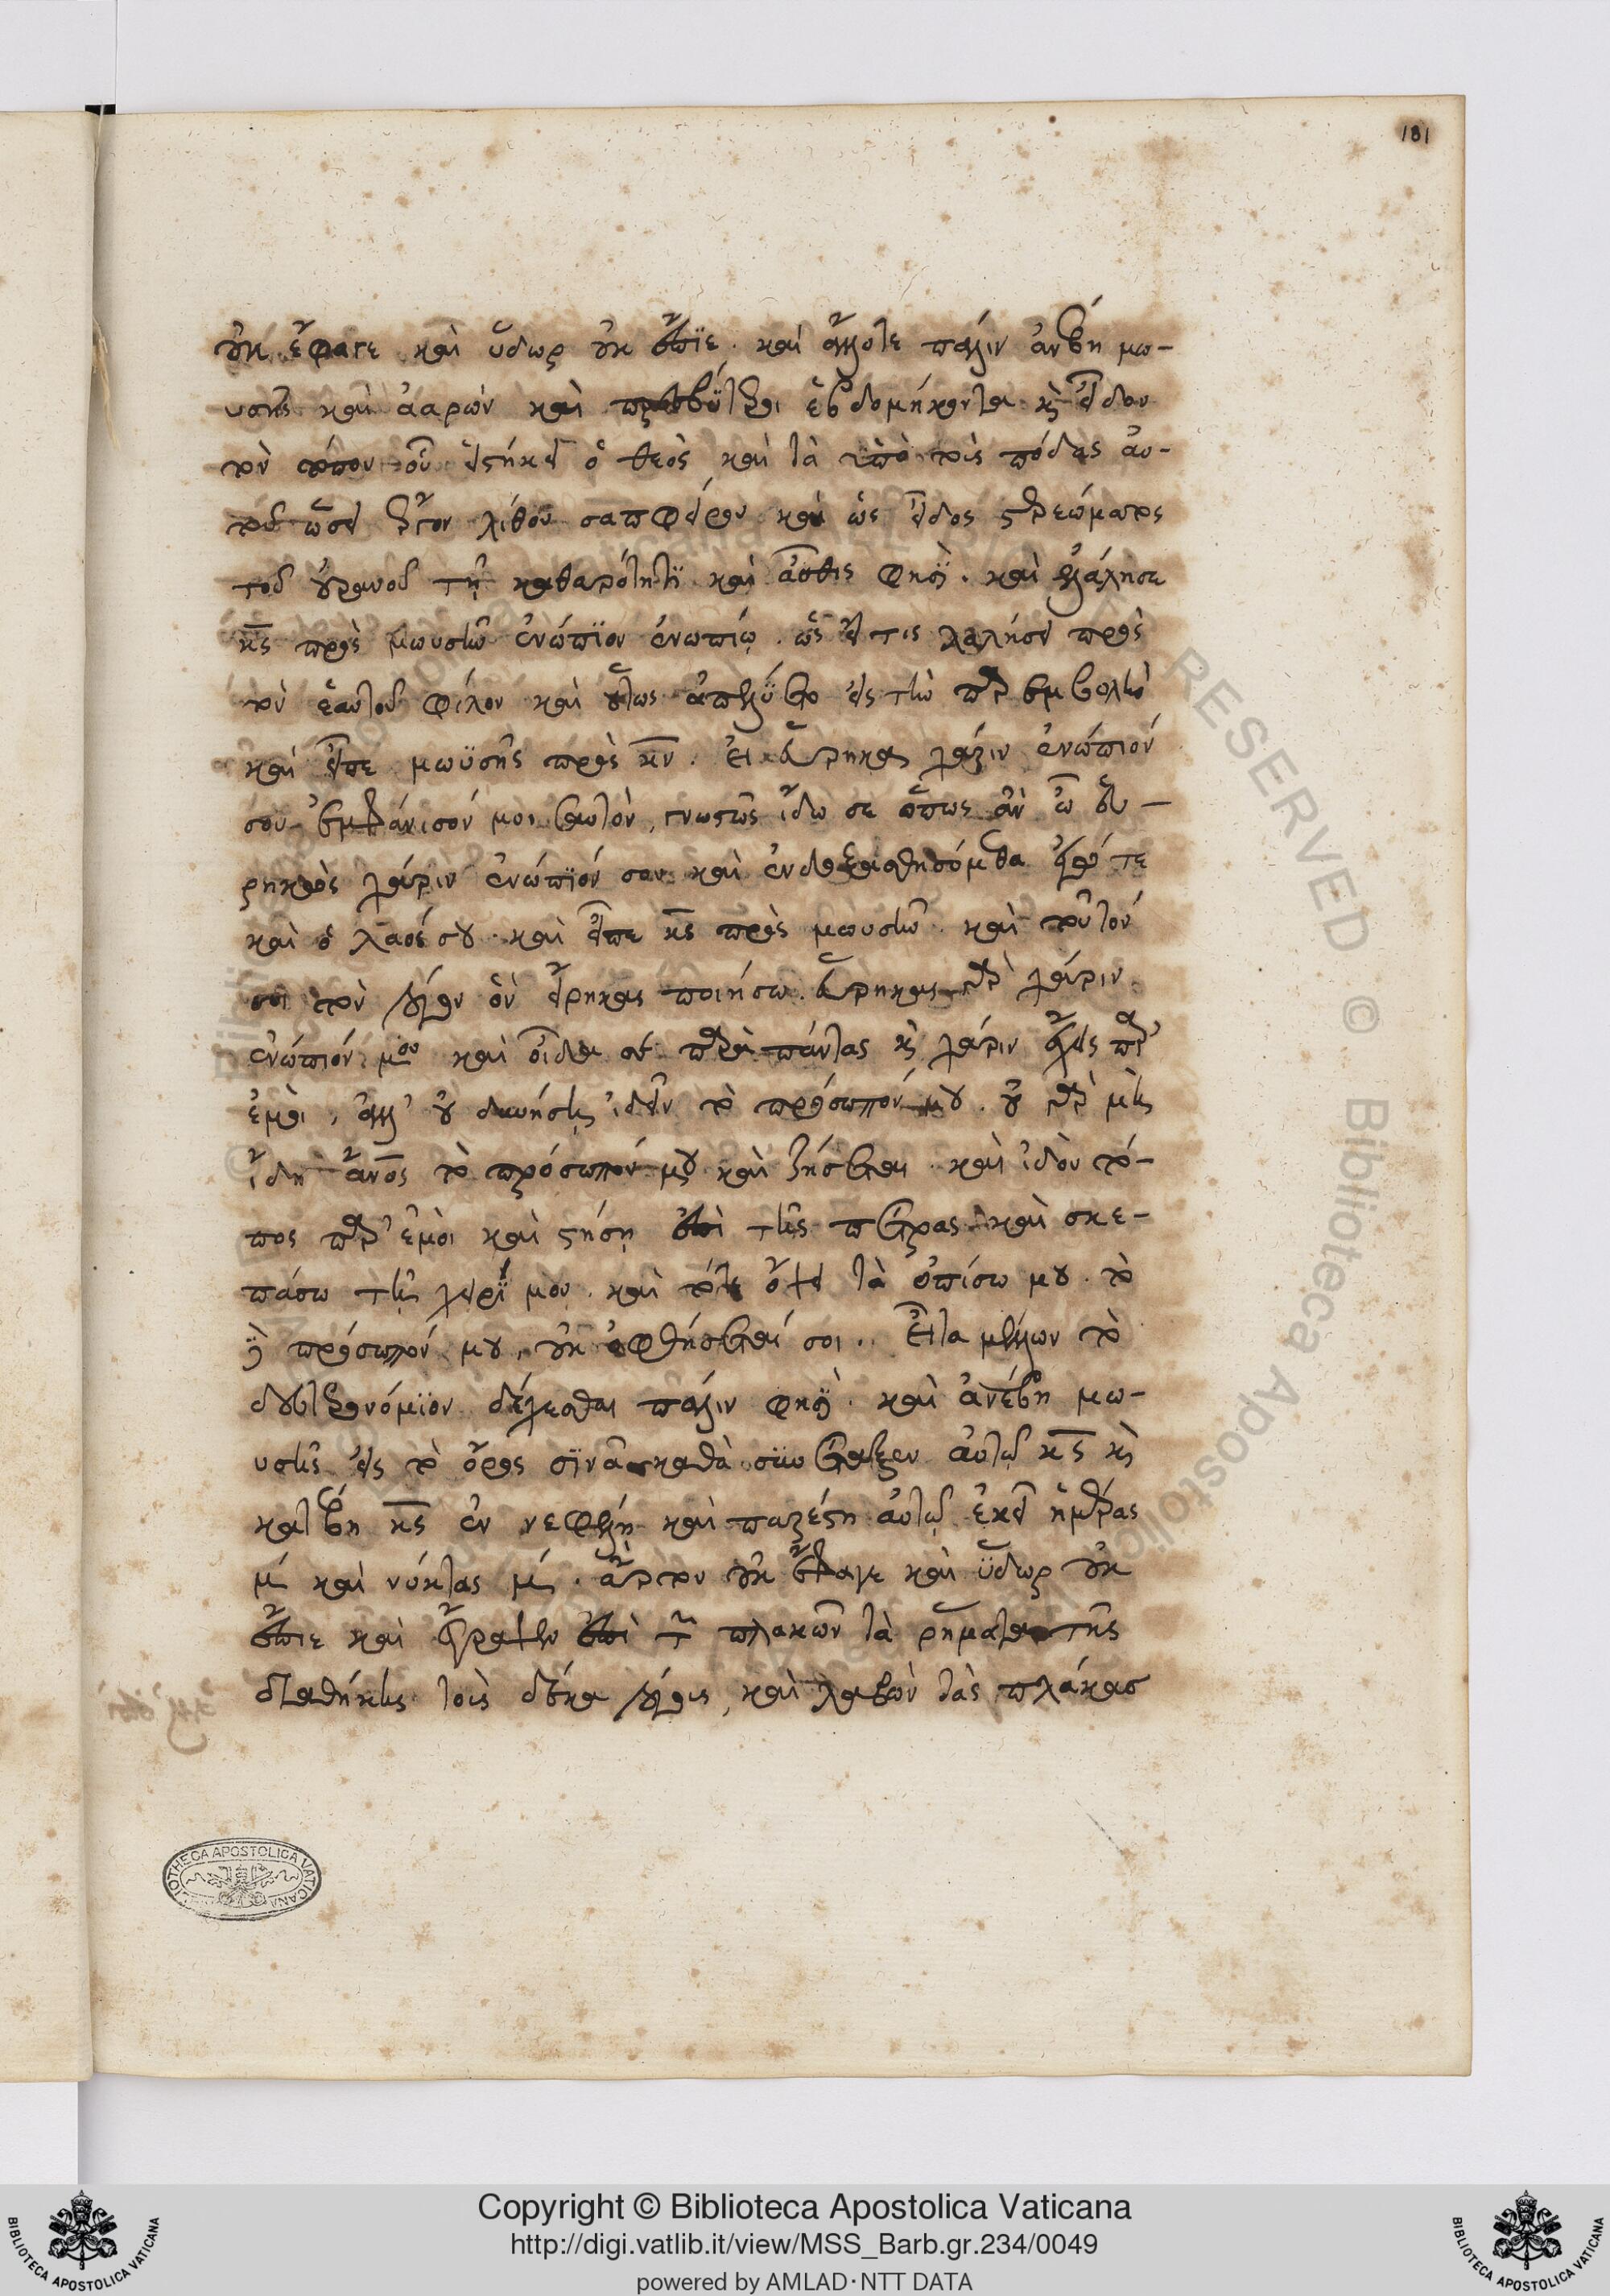 181
οὐκ ἔφαγε καὶ ὕδωρ οὐκ ἔπϊε. καὶ ἄλλοτε πάλιν ἀνέβη μω-
υσῆς καὶ ἀαρὼν καὶ πρεσβύτεροι ἑβδομήκοντα κ εἶδον
τὸν τόπον οὗ εἱστήκει ὁ θεὸς καὶ τὰ ὑπὸ τοὺς πόδας αὐ-
τοῦ ὡσεὶ ἔργον λίθου σαπφείρου καὶ ὡς εἶδος στερεώματος
τοῦ οὐρανοῦ τῇ καθαρότητϊ καὶ αὖθις φησϊ. καὶ ἐλάλησε
κς πρὸς μωυσῆν ἐνώπϊον ἐνωπίῳ. ὡς εἴ τις λαλήσει πρὸς
τὸν ἑαυτοῦ φίλον καὶ οὕτως ἀπελύετο εἰς τὴν παρεμβολὴν
καὶ εἶπε μωϋσῆς πρὸς κν. εἰ εὕρηκα χάριν ἐνώπιόν
σου ἐμφάνισόν μοι σεαυτὸν, γνωστῶς ἴδω σε ὅπως ἂν ὦ εὑ-
ρηκὼς χάριν ἐνώπϊόν σου καὶ ἐνδοξασθησόμεθα ἐγώ τε
καὶ ὁ λαός σου. καὶ εἶπε κς πρὸς μωυσῆν. καὶ τοῦτόν
σοι τὸν λόγον ὃν εἴρηκας ποιήσω. εὕρηκας γὰρ χάριν
ἐνώπιόν μου καὶ οἶδα σὲ παρὰ πάντας κ χάριν ἔχεις παρ'
ἐμοὶ, ἀλλ' οὐ δυνήσῃ ἰδεῖν τὸ πρόσωπόν μου. οὐ γὰρ μὴ
ἴδῃ ἄνος τὸ πρόσωπόν μου καὶ ζήσεται. καὶ ἰδοὺ τό-
πος παρ' ἐμοὶ καὶ στήσῃ ἐπὶ τῆς πέτρας καὶ σκε-
πάσω τῇ χειρί μου. καὶ τότε ὄψει τὰ ὀπίσω μου. τὸ
δὲ πρόσωπόν μου, οὐκ ὀφθήσεταί σοι.. εἶτα μέλλων τὸ
δευτερονόμϊον δέχεσθαι πάλιν φησϊ. καὶ ἀνέβη μω-
υσῆς εἰς τὸ ὄρος σϊνᾶ καθὰ συνέταξεν αὐτῷ κς κ
κατέβη κς ἐν νεφέλῃ καὶ παρέστη αὐτῷ ἐκεῖ ἡμέρας
μ καὶ νύκτας μ. ἄρτον οὐκ ἔφαγε καὶ ὕδωρ οὐκ
ἔπιε καὶ ἔγραψεν ἐπὶ τῶν πλακῶν τὰ ῥήματα τῆς
διαθήκης τοὺς δέκα λόγους, καὶ λαβὼν τὰς πλάκασ
BIBLIOTHECA APOSTOLICA VATICANA
Copyright © Biblioteca Apostolica Vaticana
http://digi.vatlib.it/view/MSS_Barb.gr.234/0049
powered by AMLAD·NTT DATA